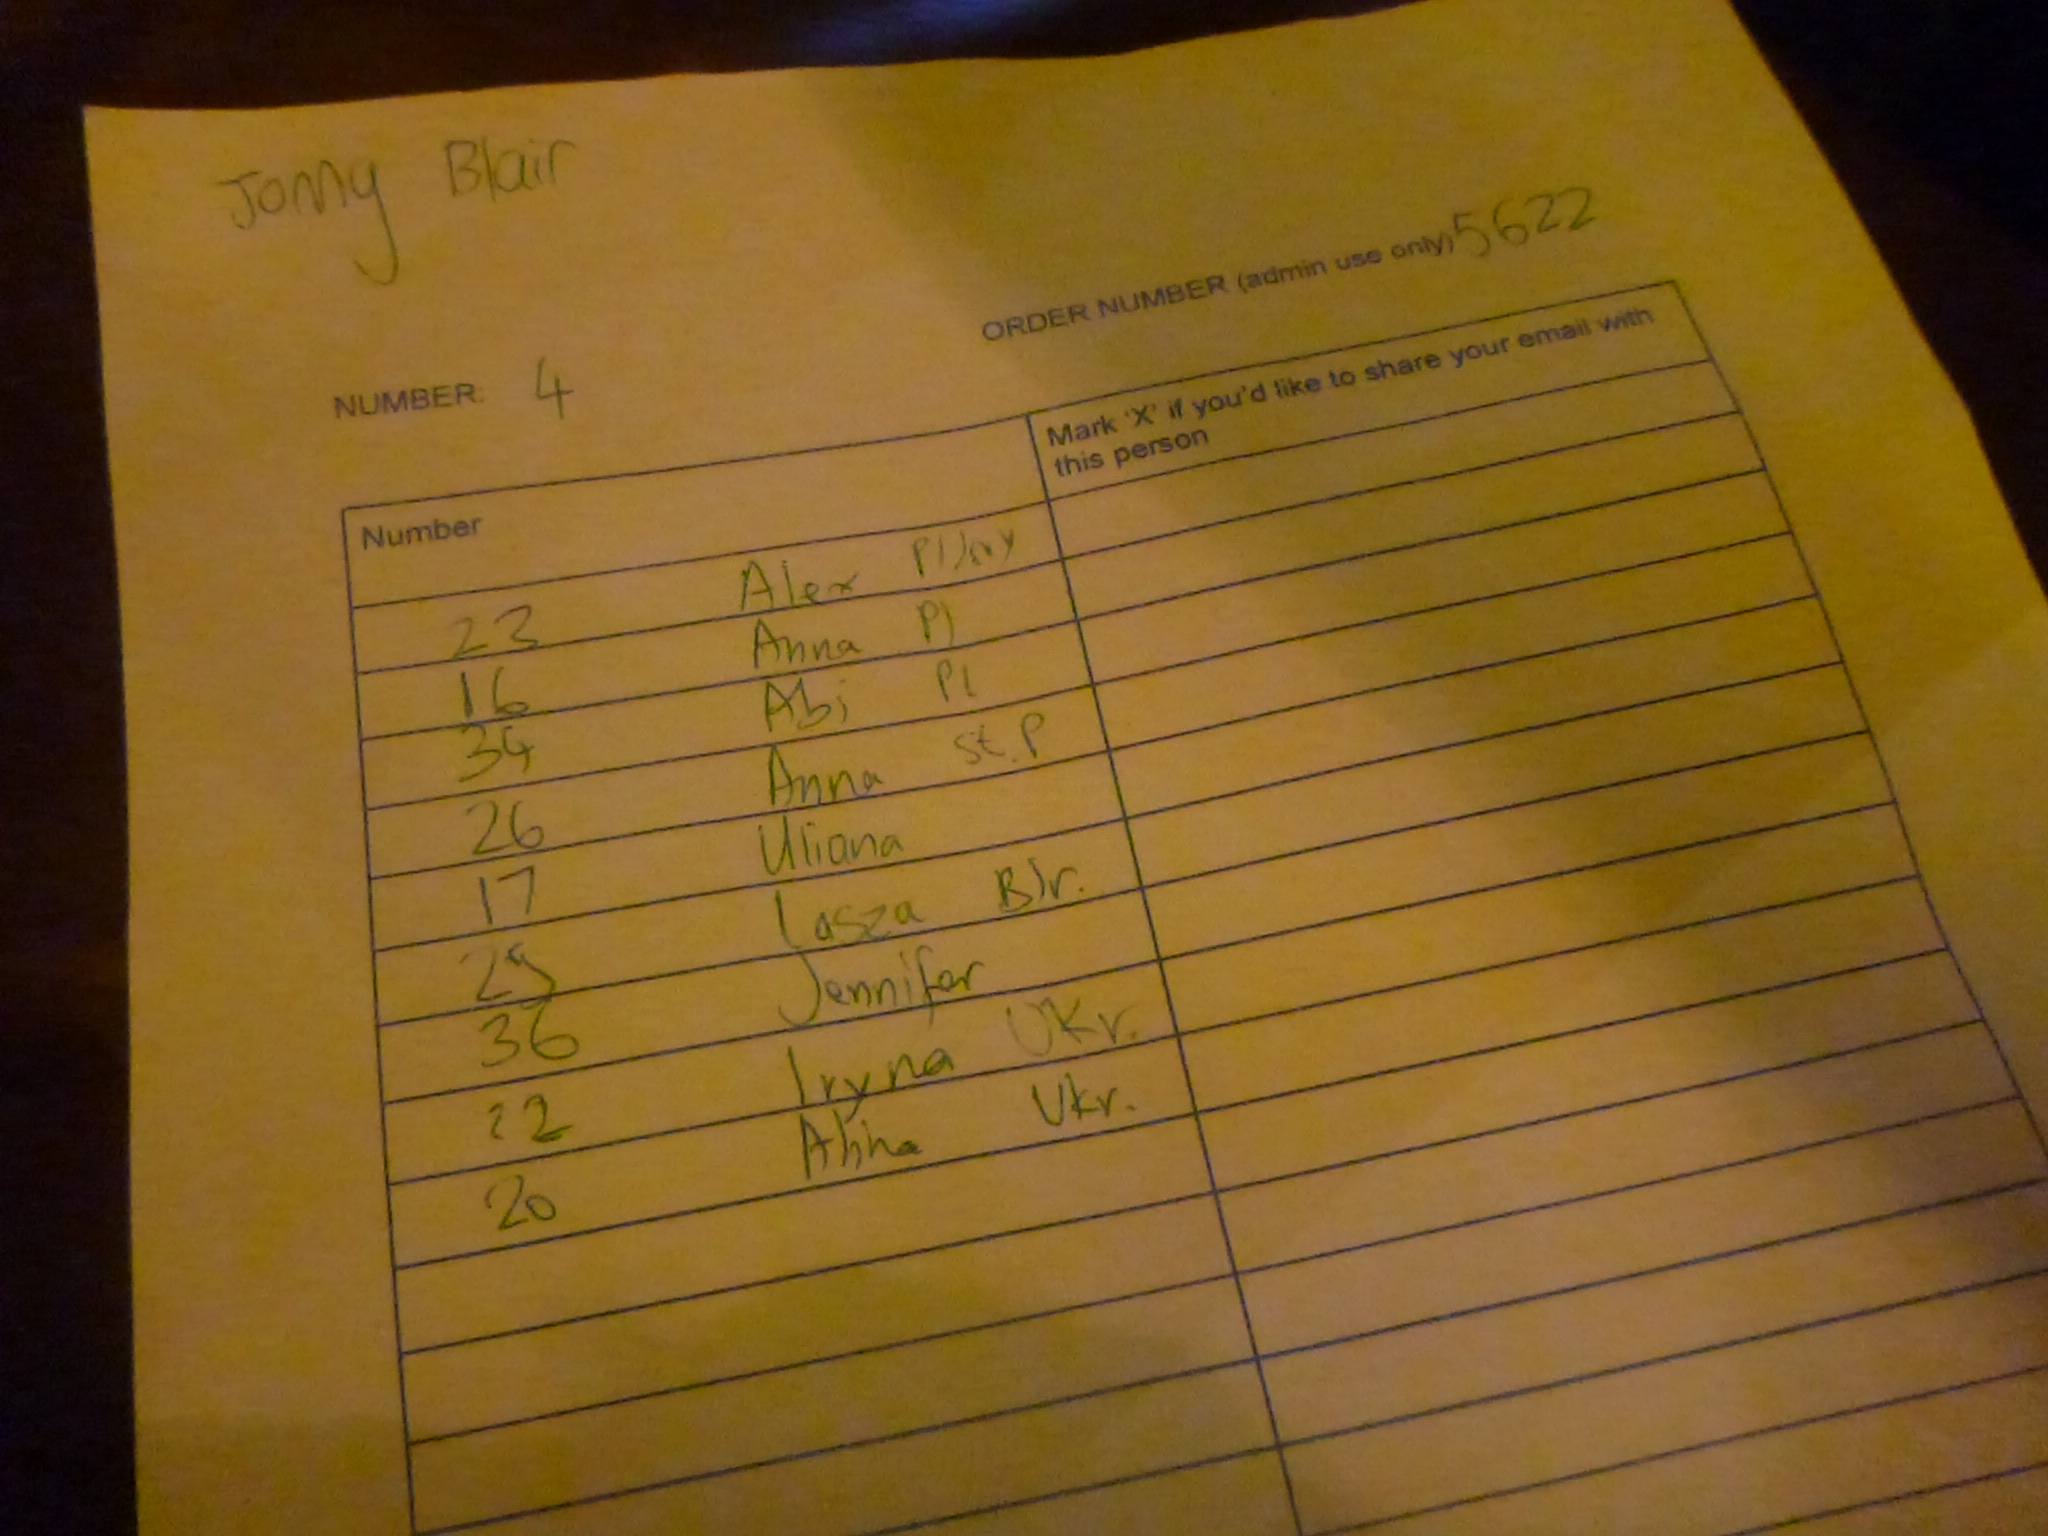 Jonny Blair
ORDER NUMBER (admin use only) 5622
NUMBER: 4
Number
Mark 'X' if you'd like to share your email with
this person
23 Alex Pl
16 Anna Pl
34 Abi Pl
26 Anna St.P
17 Uliana
29 Lasza Blr.
36 Jennifer
22 Iryna Ukr.
20 Anna Ukr.